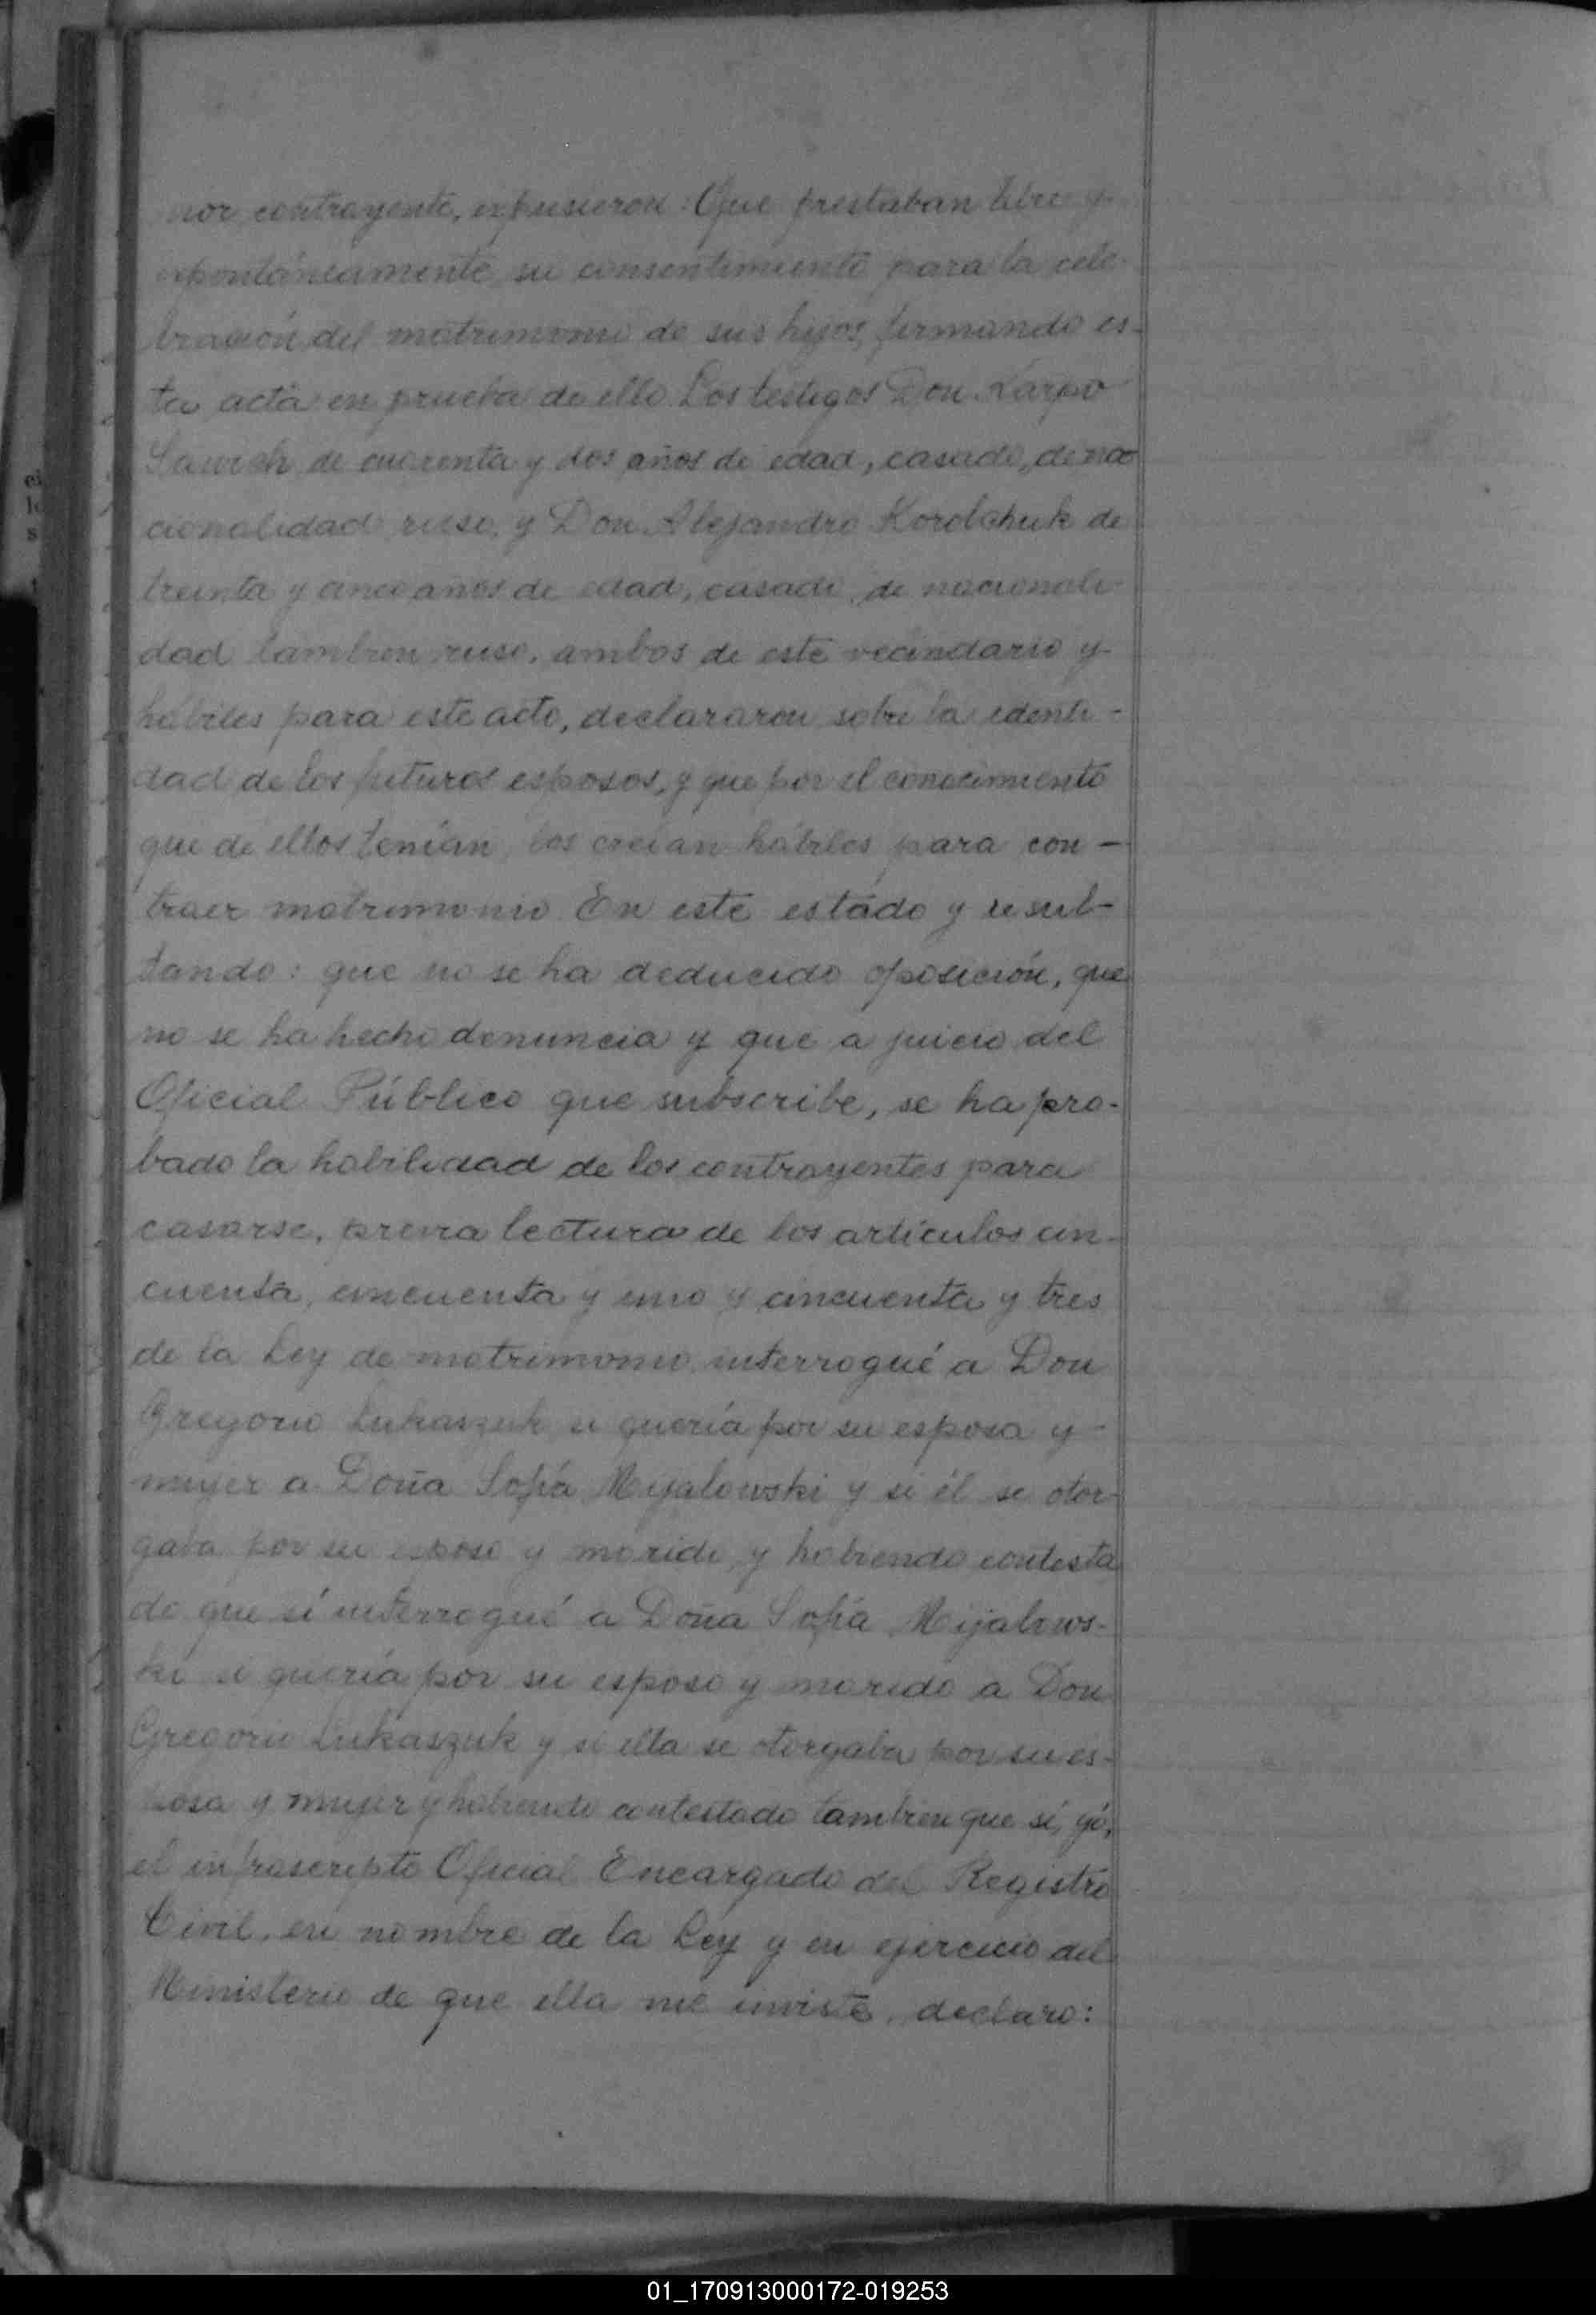 nor contrayente, expusieron: Que prestaban libre y
espontáneamente su consentimiento para la cele-
bración del matrimonio de sus hijos, firmando es-
ta acta en prueba de ello. Los testigos Don Karpo
Sawich de cuarenta y dos años de edad, casado, de na
cionalidad ruso, y Don Alejandro Korolchuk de
treinta y cinco años de edad, casado, de nacionali-
dad tambien ruso, ambos de este vecindario y
hábiles para este acto, declararon sobre la identi-
dad de los futuros esposos, y que por el conocimiento
que de ellos tenían, los creían hábiles para con-
traer matrimonio. En este estado y resul-
tando: que no se ha deducido oposición, que
no se ha hecho denuncia y que a juicio del
Oficial Público que subscribe, se ha pro-
bado la habilidad de los contrayentes para
casarse, previa lectura de los artículos cin-
cuenta, cincuenta y uno y cincuenta y tres
de la Ley de matrimonio, interrogué a Don
Gregorio Lukaszuk si quería por su esposa y
mujer a Doña Sofía Mijalowski y si él se otor-
gaba por su esposo y marido, y habiendo contesta
do que sí interrogué a Doña Sofía Mijalows-
ki si quería por su esposo y marido a Don
Gregorio Lukaszuk y si ella se otorgaba por su es-
posa y mujer y habiendo contestado tambien que sí, yó,
el infrascripto Oficial Encargado del Registro
Civil, en nombre de la Ley y en ejercicio del
Ministerio de que ella me inviste, declaro:
01_170913000172-019253